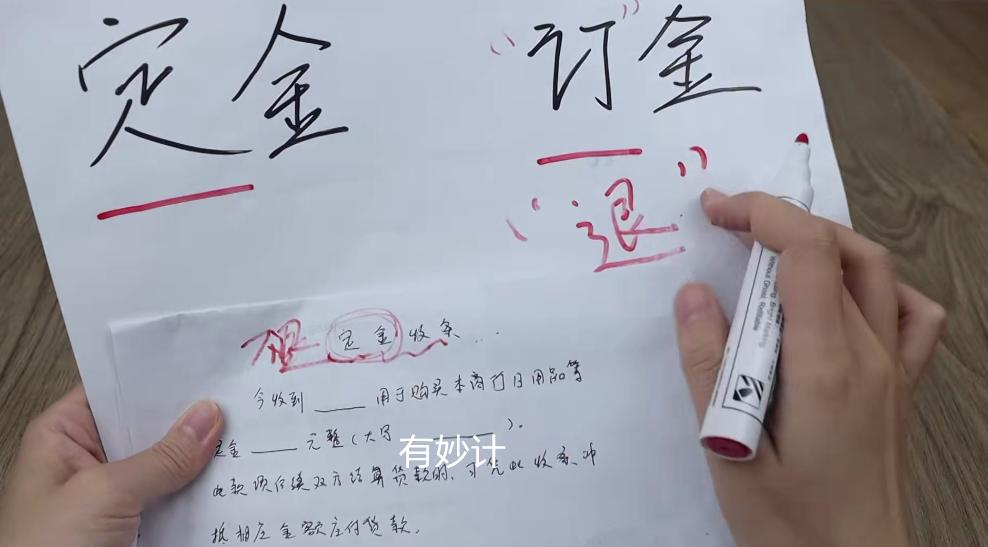 定金
“订金”
“退”
不退 定金收条
今收到____用于购买本商行日用品等
定金____元整（大写____）。
此款项后续双方结算货款时，可凭此收条冲
抵相应金额应付货款。
有妙计